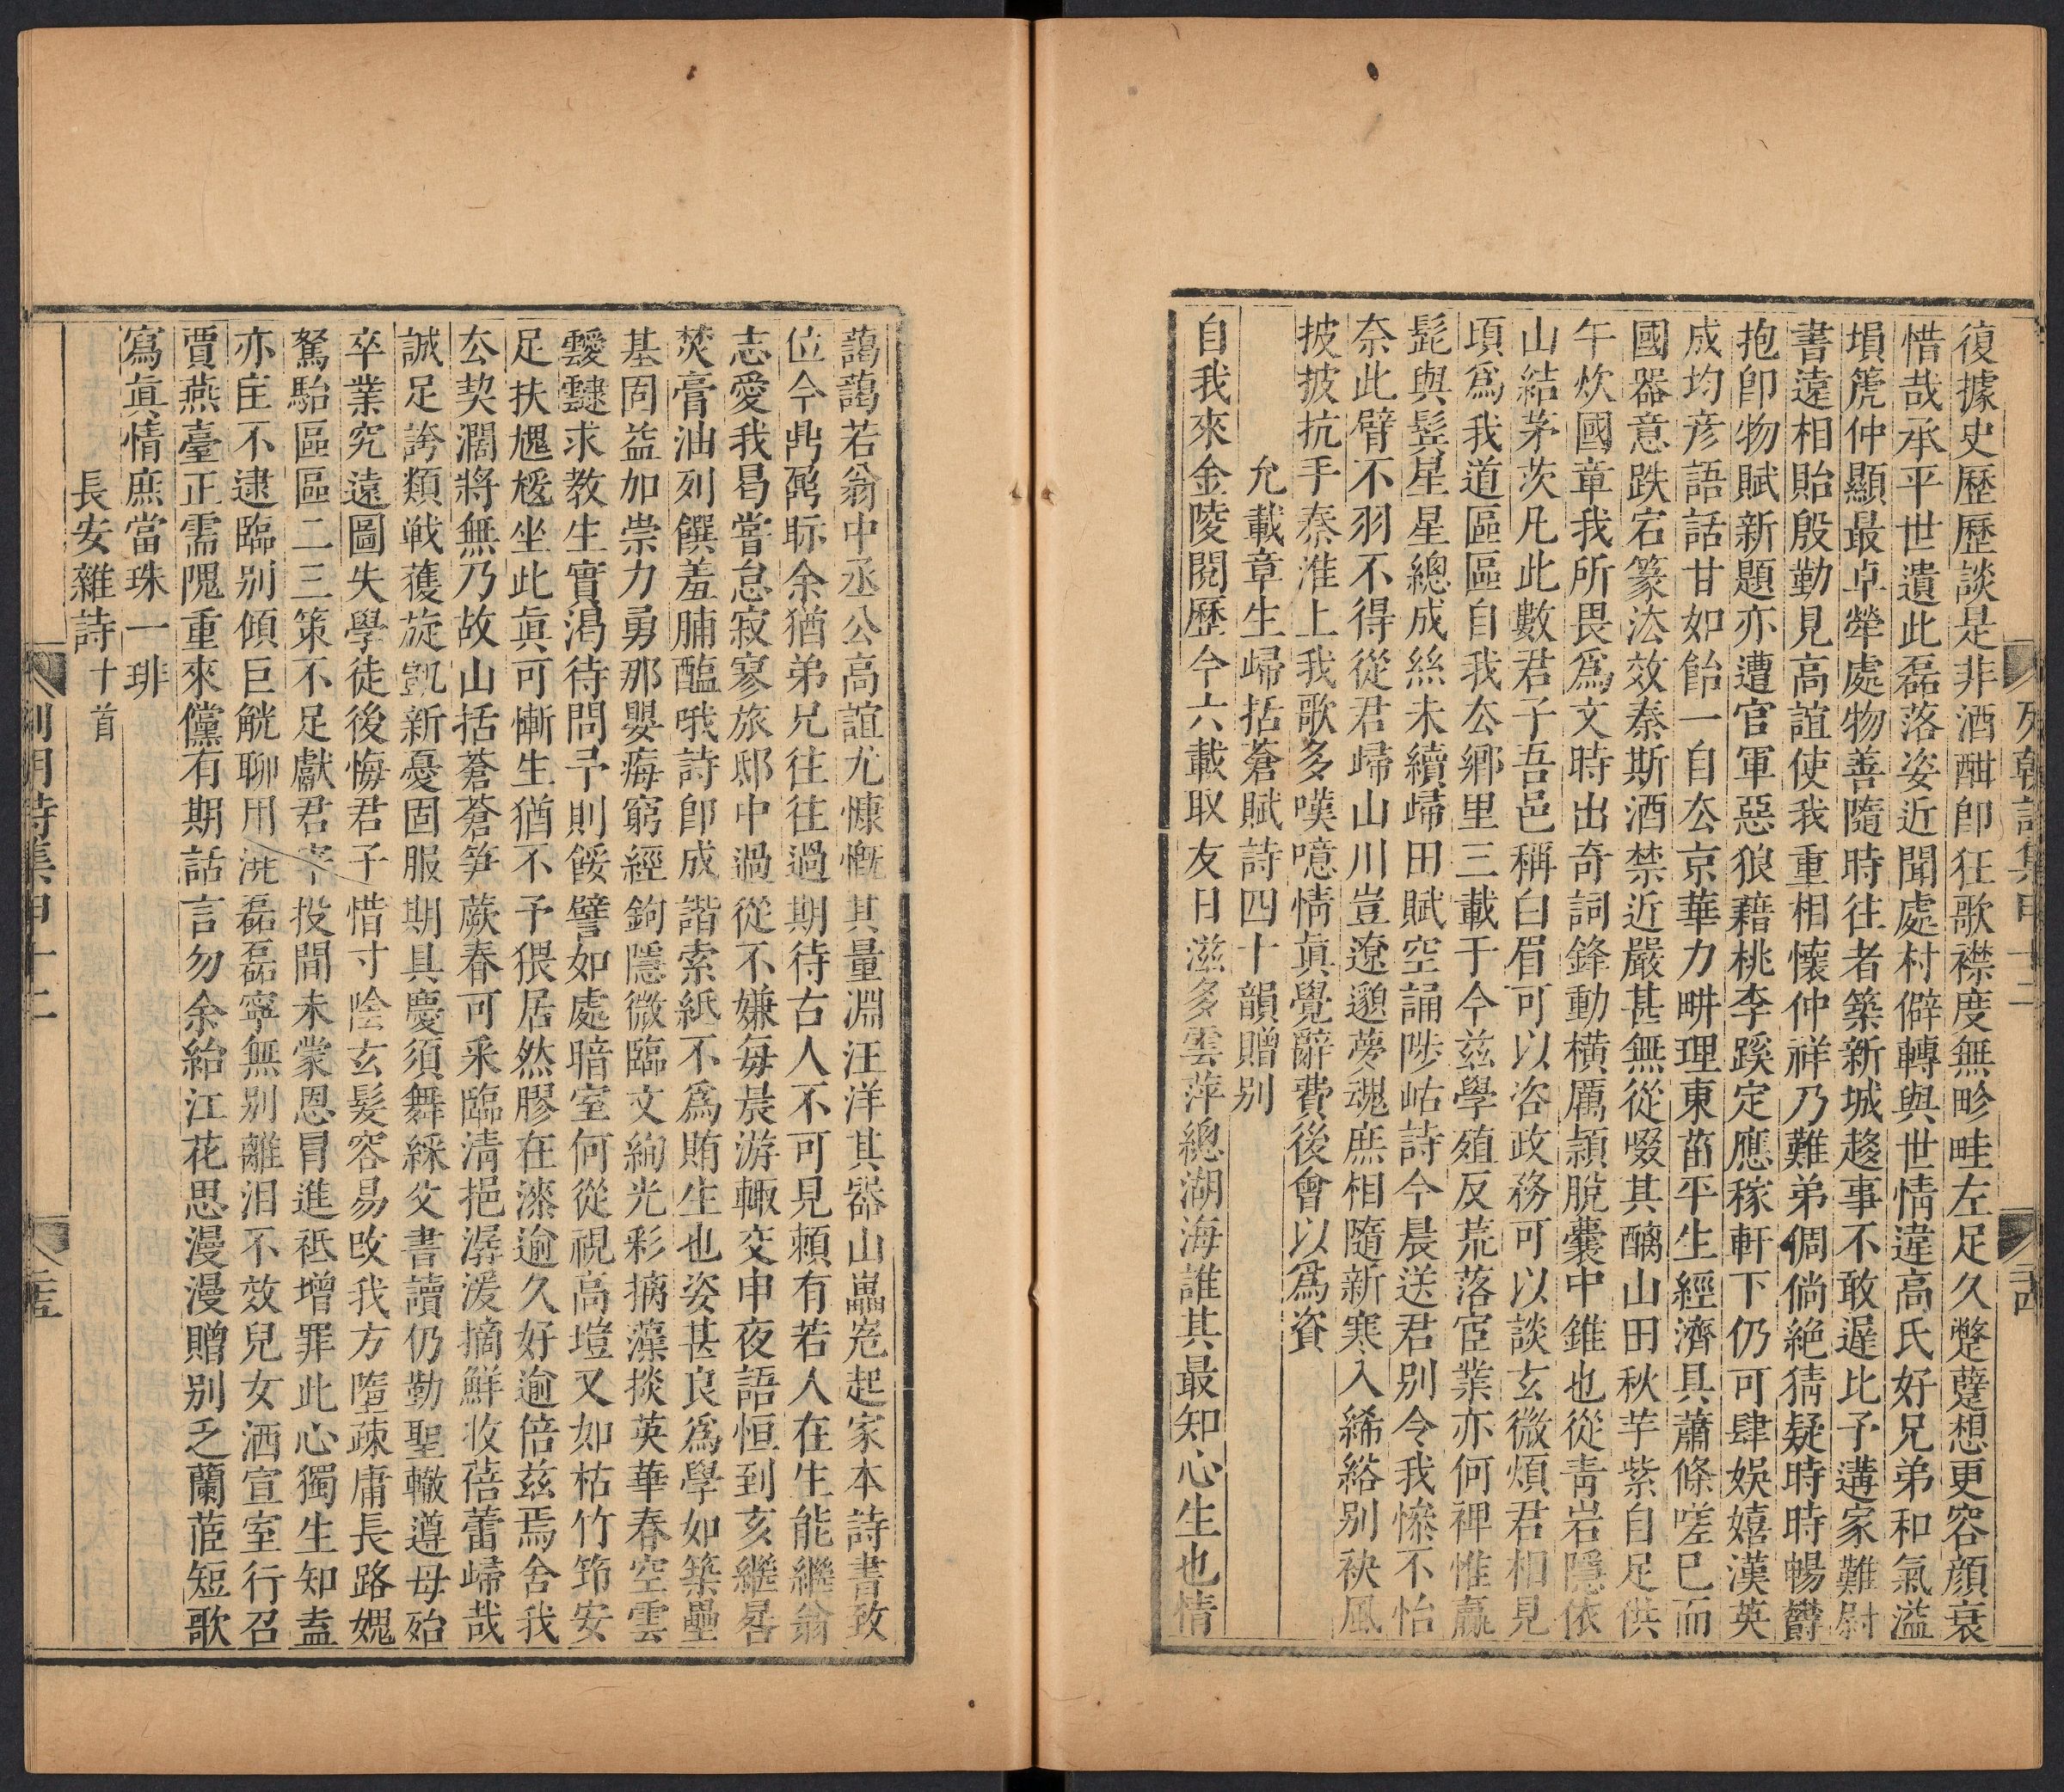 復據史歷歷談是非酒酣卽狂歌襟度無畛畦左足久蹩躠想更容顏衰
惜哉承平世遺此磊落姿近聞處村僻轉與世情違高氏好兄弟和氣溢
塤篪仲顯最卓犖處物善隨時往者築新城趍事不敢遲比予遘家難尉
書遠相貽殷勤見高誼使我重相懷仲祥乃難弟倜倘絶猜疑時時暢欝
抱卽物賦新題亦遭官軍惡狼藉桃李蹊定應稼軒下仍可肆娛嬉漢英
成均彦語話甘如飴一自去京華力畊理東菑平生經濟具蕭條嗟已而
國器意跌宕篆法效秦斯酒禁近嚴甚無從啜其醨山田秋芋紫自足供
午炊國章我所畏爲文時出奇詞鋒動橫厲頴脫囊中錐也從青岩隱依
山結茅茨凡此數君子吾邑稱白眉可以咨政務可以談玄微煩君相見
頃爲我道區區自我去鄉里三載于今茲學殖反荒落宦業亦何裨惟羸
髭與髩星星總成絲未續歸田賦空誦陟岵詩今晨送君别令我慘不怡
奈此臂不羽不得從君歸山川豈遼邈夢魂庶相隨新寒入絺綌别袂風
披披抗手秦淮上我歌多嘆噫情眞覺辭費後會以爲資
允載章生歸括蒼賦詩四十韻贈别
自我來金陵閱歷今六載取友日滋多雲萍總湖海誰其最知心生也情
藹藹若翁中丞公高誼尤慷慨其量淵汪洋其器山巃嵸起家本詩書致
位今鼎鼐眎余猶弟兄往往過期待古人不可見頼有若人在生能繼翁
志愛我曷嘗怠寂寥旅邸中過從不嫌每晨游輙交申夜語恒到亥繼晷
焚膏油列饌羞脯醢哦詩卽成諧索紙不爲賄生也姿甚良爲學如築壘
基固益加崇力勇那嬰痗窮經鉤隱微臨文絢光彩摛藻掞英華春空雲
靉靆求教生實渴待問予則餒譬如處暗室何從視高塏又如枯竹笻安
足扶尵𡯓坐此眞可慚生猶不予猥居然膠在漆逾久好逾倍茲焉舍我
去契濶將無乃故山括蒼蒼笋蕨春可釆臨淸挹潺湲摘鮮收蓓蕾歸哉
誠足誇類戦獲旋凱新憂固服期具慶須舞綵父書讀仍勤聖轍遵毋殆
卒業究遠圖失學徒後悔君子惜寸陰玄髮容易改我方墮疎庸長路媿
駑駘區區二三策不足獻君宰投閒未蒙恩冒進祗增罪此心獨生知盍
亦匡不逮臨别傾巨觥聊用澆磊磊寧無别離泪不效兒女洒宣室行召
賈燕臺正需隗重來儻有期話言勿余紿江花思漫漫贈别乏蘭茝短歌
寫眞情庶當珠一琲
長安雜詩十首
列朝詩集甲十二
二十五